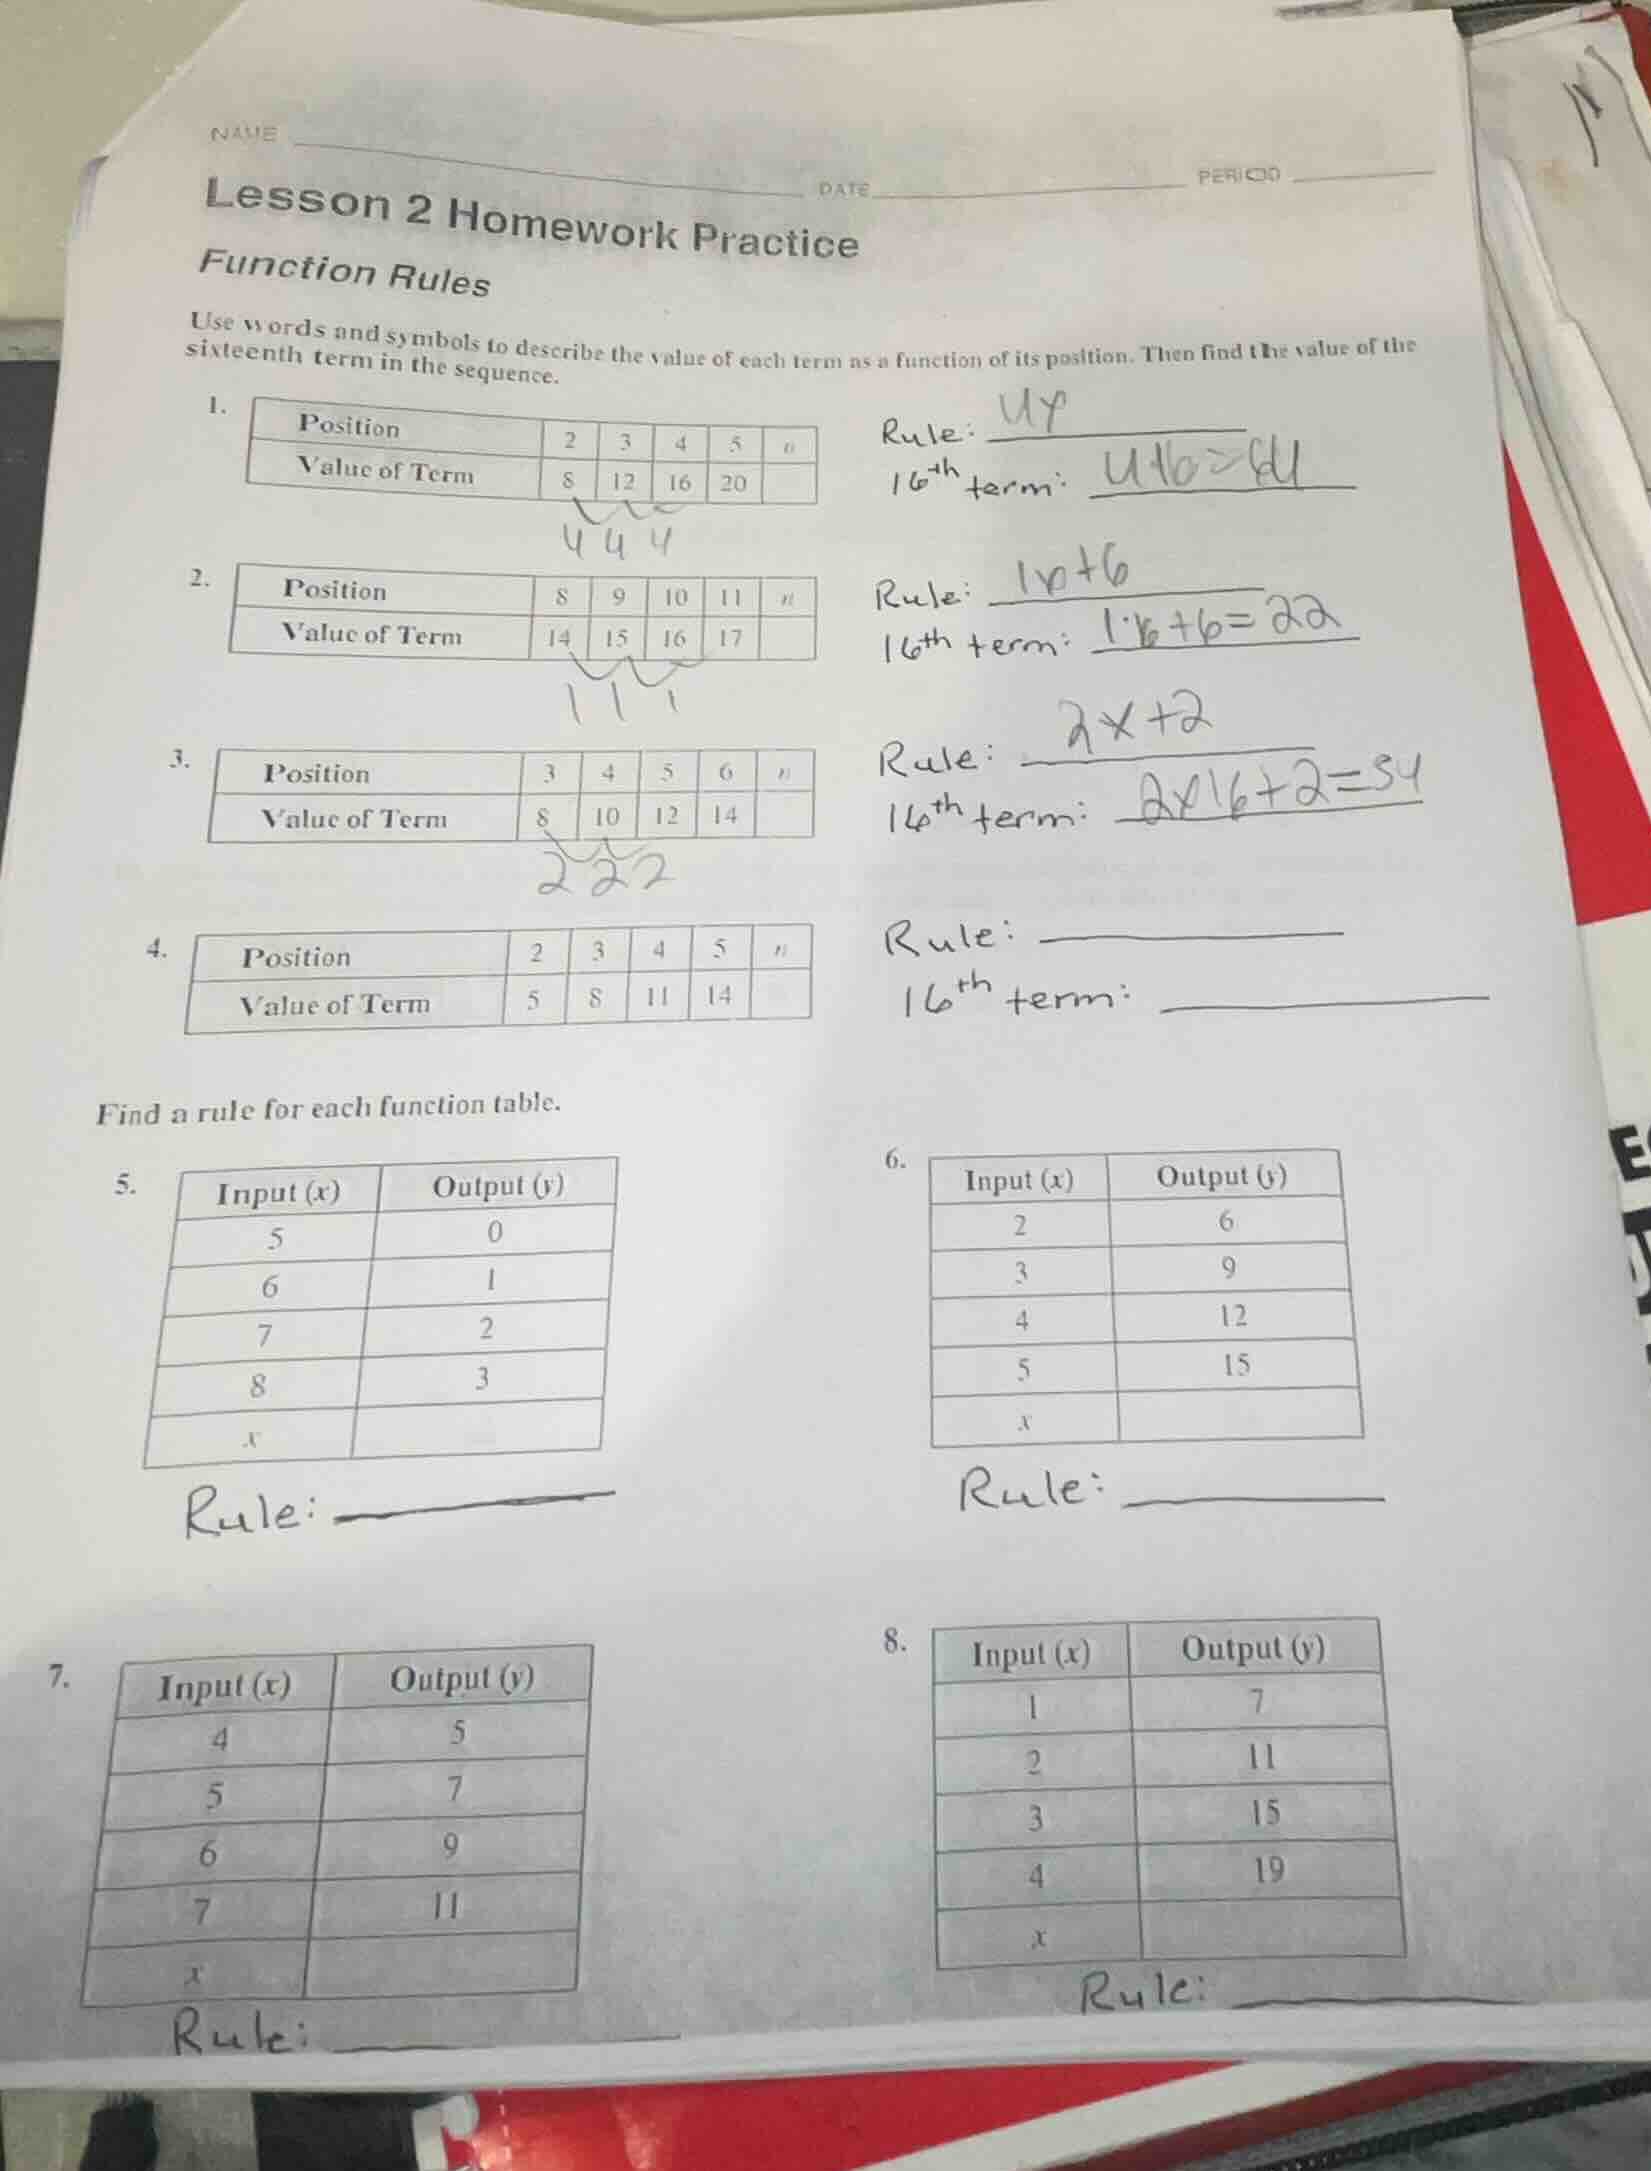 NAME DATE PERIOD
Lesson 2 Homework Practice
Function Rules
Use words and symbols to describe the value of each term as a function of its position. Then find the value of the
sixteenth term in the sequence.
1.
Position 2 3 4 5 n
Value of Term 8 12 16 20
4 4 4
Rule:
16th term:
2.
Position 8 9 10 11 n
Value of Term 14 15 16 17
1 1 1
Rule:
16th term: 1·16+6=22
3.
Position 3 4 5 6 n
Value of Term 8 10 12 14
2 2 2
Rule: 2x+2
16th term: 2x16+2=34
4.
Position 2 3 4 5 n
Value of Term 5 8 11 14
Rule:
16th term:
Find a rule for each function table.
5.
Input (x) Output (y)
5 0
6 1
7 2
8 3
x
Rule:
6.
Input (x) Output (y)
2 6
3 9
4 12
5 15
x
Rule:
7.
Input (x) Output (y)
4 5
5 7
6 9
7 11
x
Rule:
8.
Input (x) Output (y)
1 7
2 11
3 15
4 19
x
Rule: